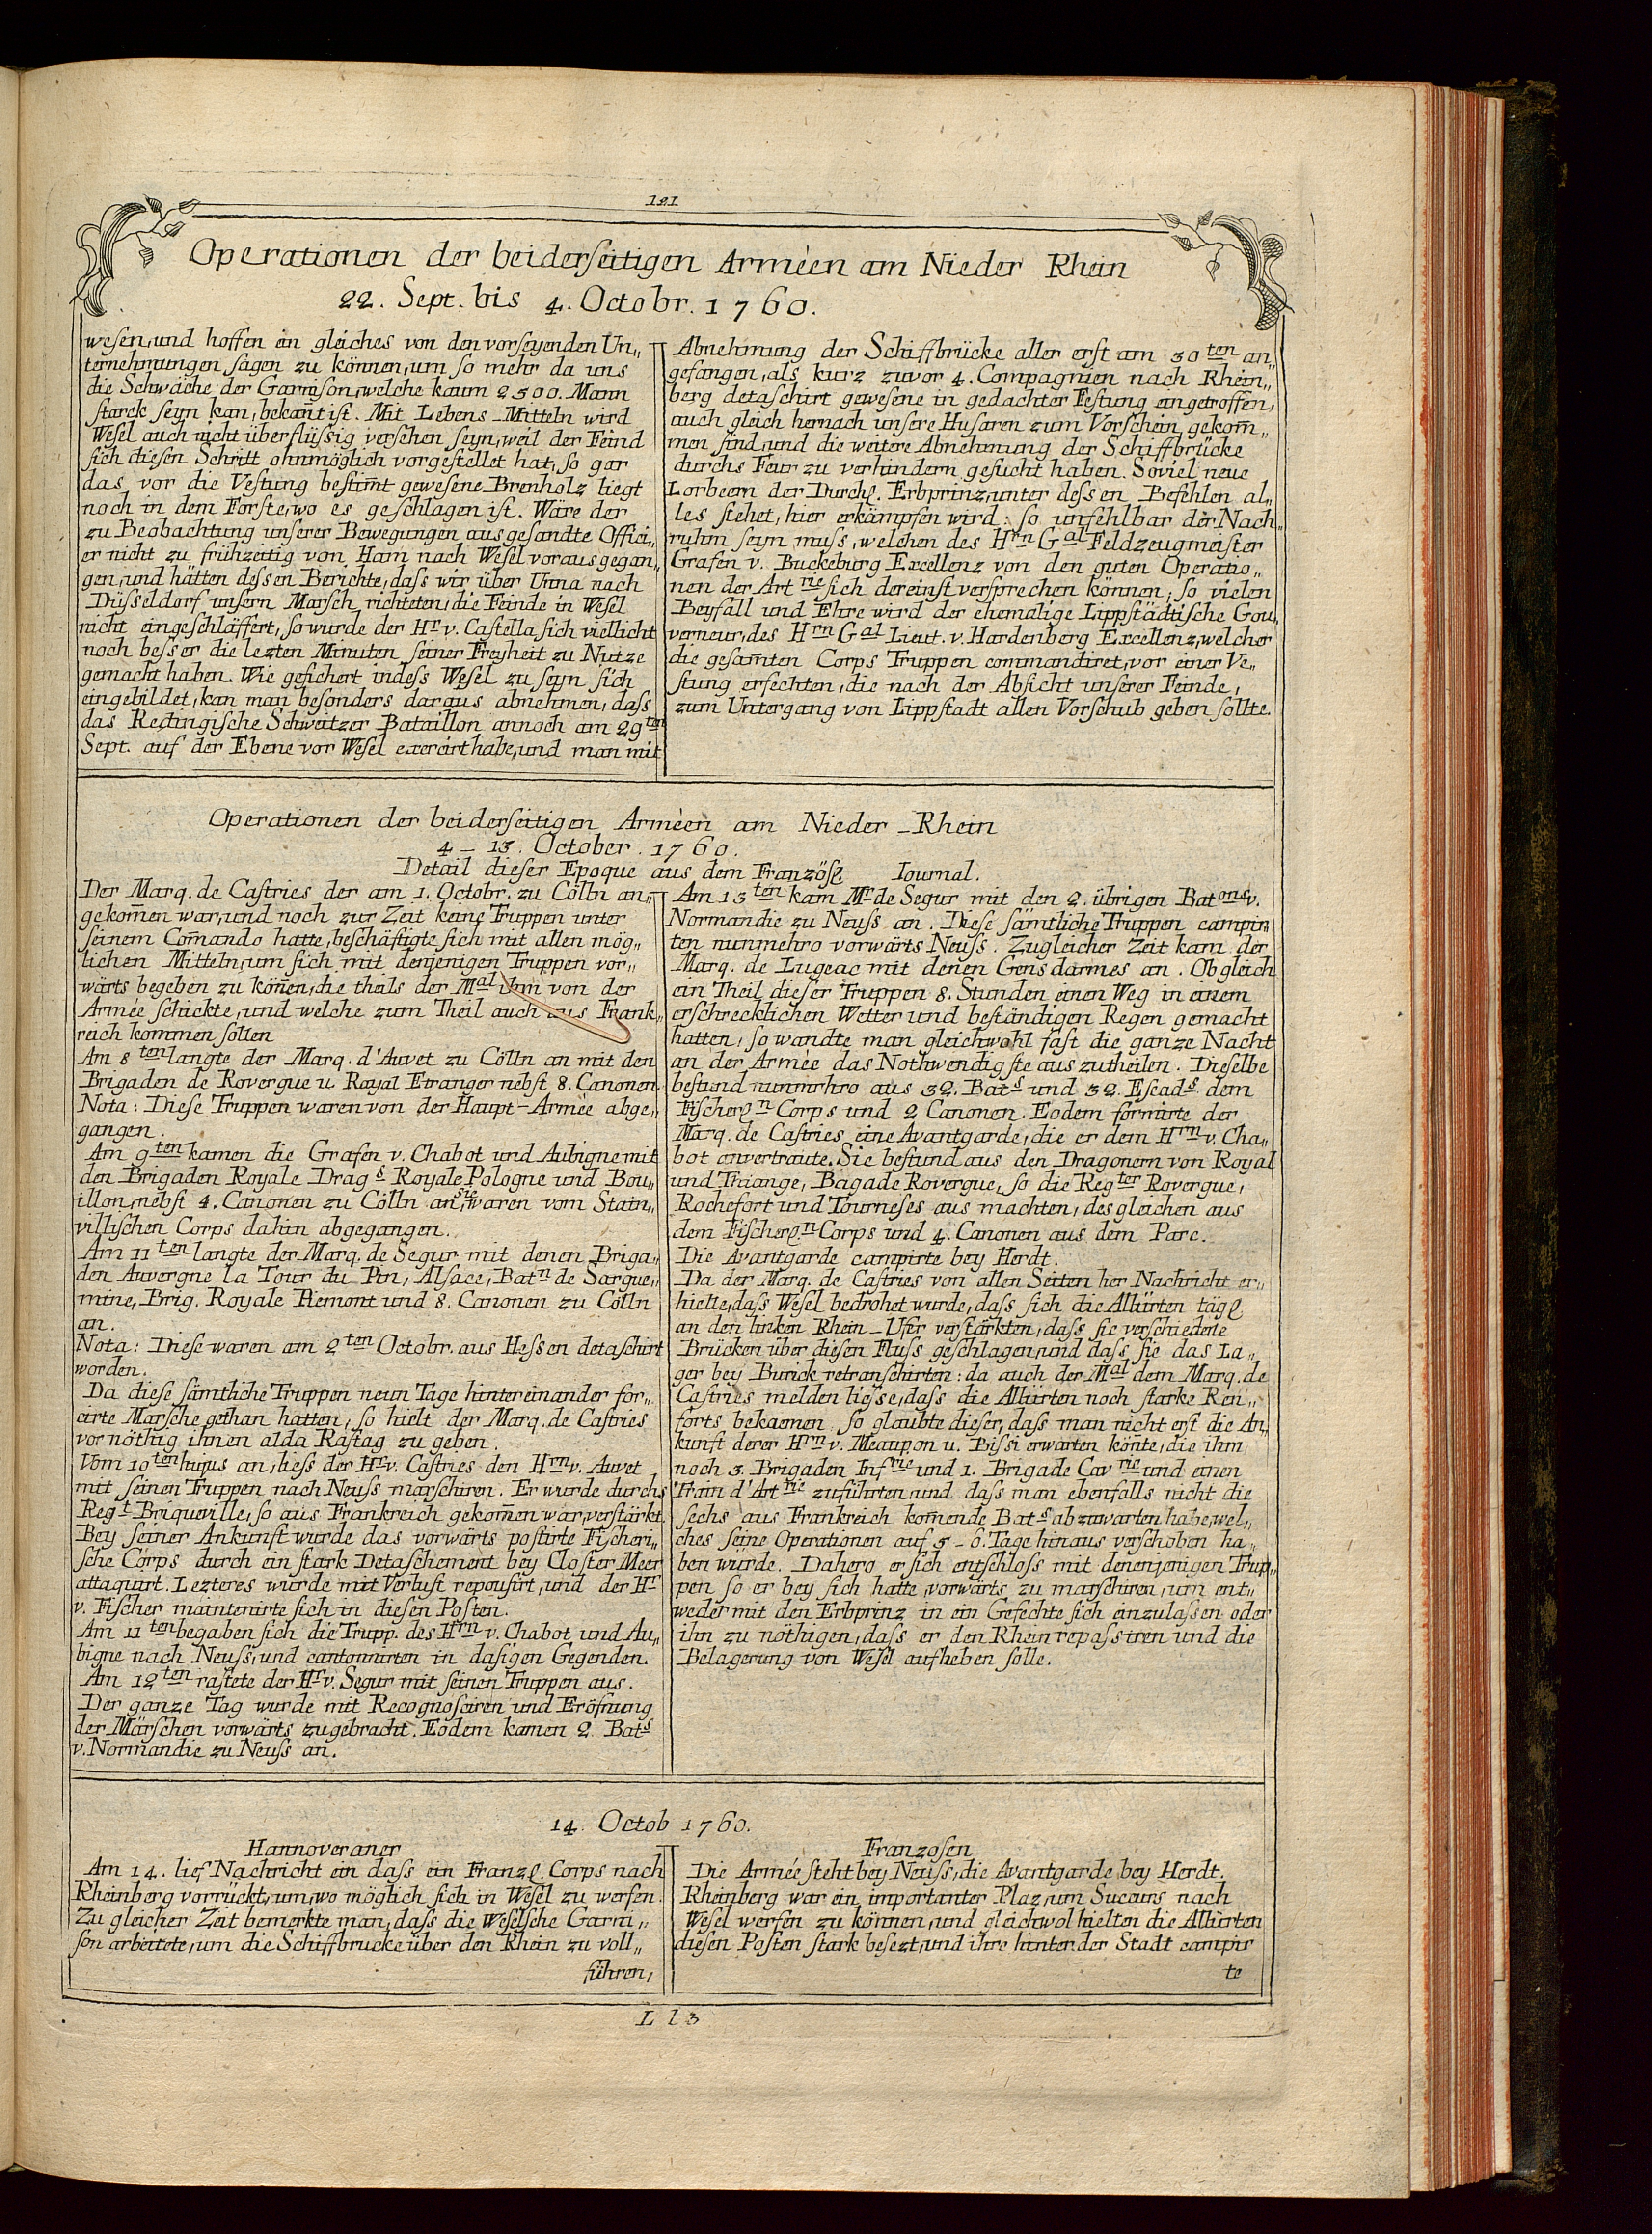 121
Operationen der beiderseitigen Armèen am Nieder Rhein
22. Sept. bis 4. Octobr. 1760.
wesen, und hoffen ein gleiches von den vorseyenden Un„
ternehmungen sagen zu können, um so mehr da uns
die Schwäche der Garnison, welche kaum 2500. Mann
starck seyn kan, bekant ist. Mit Lebens-Mitteln wird
Wesel auch nicht überflüssig versehen seyn, weil der Feind
sich diesen Schritt ohnmöglich vorgestellet hat, so gar
das vor die Vestung bestim̄t gewesene Brenholz liegt
noch in dem Forste, wo es geschlagen ist. Wäre der
zu Beobachtung unserer Bewegungen ausgesandte Offici„
er nicht zu frühzeitig von Ham nach Wesel vorausgegan„
gen, und hätten dessen Berichte, dass wir über Unna nach
Düsseldorf unsern Marsch richteten, die Feinde in Wesel
nicht eingeschläffert, so wurde der Hr v. Castella sich viellicht
noch besser die lezten Minuten seiner Freyheit zu Nutze
gemacht haben. Wie gesichert indess Wesel zu seyn sich
eingebildet, kan man besonders daraus abnehmen, dass
das Redingische Schweitzer Bataillon annoch am 29ten
Sept. auf der Ebene vor Wesel exercirt habe, und man mit
Abnehmung der Schiffbrücke aller erst am 30ten an„
gefangen, als kurz zuvor 4. Compagnien nach Rhein„
berg detaschirt gewesene in gedachter Festung angetroffen,
auch gleich hernach unsere Husaren zum Vorschein gekom̄„
men sind, und die weitere Abnehmung der Schiffbrücke
durchs Feur zu verhindern gesucht haben. Soviel neue
Lorbeern der Durchl. Erbprinz, unter dessen Befehlen al„
les stehet, hier erkämpfen wird: so unfehlbar der Nach„
ruhm seyn muss, welchen des Hrn Gal Feldzeugmeister
Grafen v. Buckeburg Excellenz von den guten Operatio„
nen der Artrie sich dereinst versprechen können, so vielen
Beyfall und Ehre wird der ehemalige Lippstädtische Gou„
verneur, des Hrn Gal Lieut. v. Hardenberg Excellenz, welcher
die gesam̄ten Corps Truppen commandiret, vor einer Ve„
stung erfechten, die nach der Absicht unserer Feinde,
zum Untergang von Lippstadt allen Vorschub geben sollte.
Operationen der beiderseitigen Armèen am Nieder-Rhein
4-13. October. 1760.
Detail dieser Epoque aus dem Französl Iournal.
Der Marq. de Castries der am 1. Octobr. zu Cölln an„
gekom̄en war, und noch zur Zeit keine Truppen unter
seinem Com̄ando hatte, beschäftigte sich mit allen mög„
lichen Mitteln, um sich mit denjenigen Truppen vor„
wärts begeben zu kön̄en, die theils der Mal ihm von der
Armée schickte, und welche zum Theil auch aus Frank„
reich kommen sollen
Am 8ten langte der Marq. d'Auvet zu Cölln an mit den
Brigaden de Rovergue u. Royal Etranger nebst 8. Canonen.
Nota: Diese Truppen waren von der Haupt-Armée abge„
gangen.
Am 9ten kamen die Grafen v. Chabot und Aubigne mit
den Brigaden Royale Drags Royale Pologne und Bou„
illon, nebst 4. Canonen zu Cölln an, sie waren vom Stain„
villischen Corps dahin abgegangen.
Am 11ten langte der Marq. de Segur mit denen Briga„
den Auvergne la Tour du Pin, Alsace, Batn de Sargue„
mine, Brig. Royale Piemont und 8. Canonen zu Cölln
an.
Nota: Diese waren am 2ten Octobr. aus Hessen detaschirt
worden.
Da diese sämtliche Truppen neun Tage hintereinander for„
cirte Märsche gethan hatten, so hielt der Marq. de Castries
vor nöthig ihnen alda Rastag zu geben.
Vom 10ten hujus an, liess der Hr v. Castries den Hrn v. Auvet
mit seinen Truppen nach Neuss marschiren. Er wurde durchs
Regt Briqueville, so aus Frankreich gekom̄en war, verstärkt.
Bey seiner Ankunft wurde das vorwärts postirte Fischeri„
sche Corps durch ein stark Detaschement bey Closter Meer
attaquirt. Lezteres wurde mit Verlust repousirt, und der Hr
v. Fischer maintenirte sich in diesen Posten.
Am 11ten begaben sich die Trupp. des Hrn v. Chabot und Au„
bigne nach Neuss, und cantonnirten in dasigen Gegenden.
Am 12ten rastete der Hr v. Segur mit seinen Truppen aus.
Der ganze Tag wurde mit Recognosciren und Eröfnung
der Märschen vorwärts zugebracht. Eodem kamen 2 Bats
v. Normandie zu Neuss an.
Am 13ten kam Mr de Segur mit den 2. übrigen Batons v.
Normandie zu Neuss an. Diese sämtliche Truppen campir„
ten nunmehro vorwärts Neuss. Zugleicher Zeit kam der
Marq. de Lugeac mit denen Gensdarmes an. Obgleich
ein Theil dieser Truppen 8. Stunden einen Weg in einem
erschrecklichen Wetter und beständigen Regen gemacht
hatten, so wandte man gleichwohl fast die ganze Nacht
an der Armèe das Nothwendigste auszutheilen. Dieselbe
bestund nunmrhro aus 32. Bats und 32. Escads dem
Fischerl n Corps und 2 Canonen. Eodem formirte der
Marq. de Castries eine Avantgarde, die er dem Hrn v. Cha„
bot anvertraute. Sie bestund aus den Dragonern von Royal
und Thiange, Bagade Rovergue, so die Regter Rovergue,
Rochefort und Tourneses aus machten, desgleichen aus
dem Fischerl. n Corps und 4. Canonen aus dem Parc.
Die Avantgarde campirte bey Herdt.
Da der Marq. de Castries von allen Seiten her Nachricht er„
hielte, dass Wesel bedrohet wurde, dass sich die Alliirten tägl
an den linken Rhein-Ufer verstärkten, dass sie verschiedene
Brücken über diesen Fluss geschlagen, und dass sie das La„
ger bey Burick retranschirten: da auch der Mal dem Marq. de
Castries melden liesse, dass die Alliirten noch starke Ren„
forts bekaemen, so glaubte dieser, dass man nicht erst die An„
kunft derer Hrn v. Meaupon u. Bissi erwarten kön̄te, die ihm
noch 3. Brigaden Infrie und 1. Brigade Cavrie und einen
Train d'Artrie zuführten, und dass man ebenfalls nicht die
sechs aus Frankreich kom̄ende Bats abzuwarten habe, wel„
ches seine Operationen auf 5-6. Tage hinaus verschoben ha„
ben wurde. Dahero er sich entschloss mit denenjenigen Trup„
pen so er bey sich hatte, vorwärts zu marschiren, um ent„
weder mit den Erbprinz in ein Gefechte sich einzulassen oder
ihn zu nöthigen, dass er den Rhein repassiren und die
Belagerung von Wesel aufheben solle.
14. Octob 1760.
Hannoveraner
Am 14. lief Nachricht ein dass ein Franzl. Corps nach
Rheinberg vorrückt, um, wo möglich sich in Wesel zu werfen.
Zu gleicher Zeit bemerkte man, dass die Weselsche Garni„
son arbeitete, um die Schiffbrucke über den Rhein zu voll„
führen,
Franzosen
Die Armée steht bey Neuss, die Avantgarde bey Herdt.
Rheinberg war ein importanter Plaz, um Sucours nach
Wesel werfen zu können, und gleichwol hielten die Alliirten
diesen Posten stark besezt, und ihre hinter der Stadt campir
te
L l 3